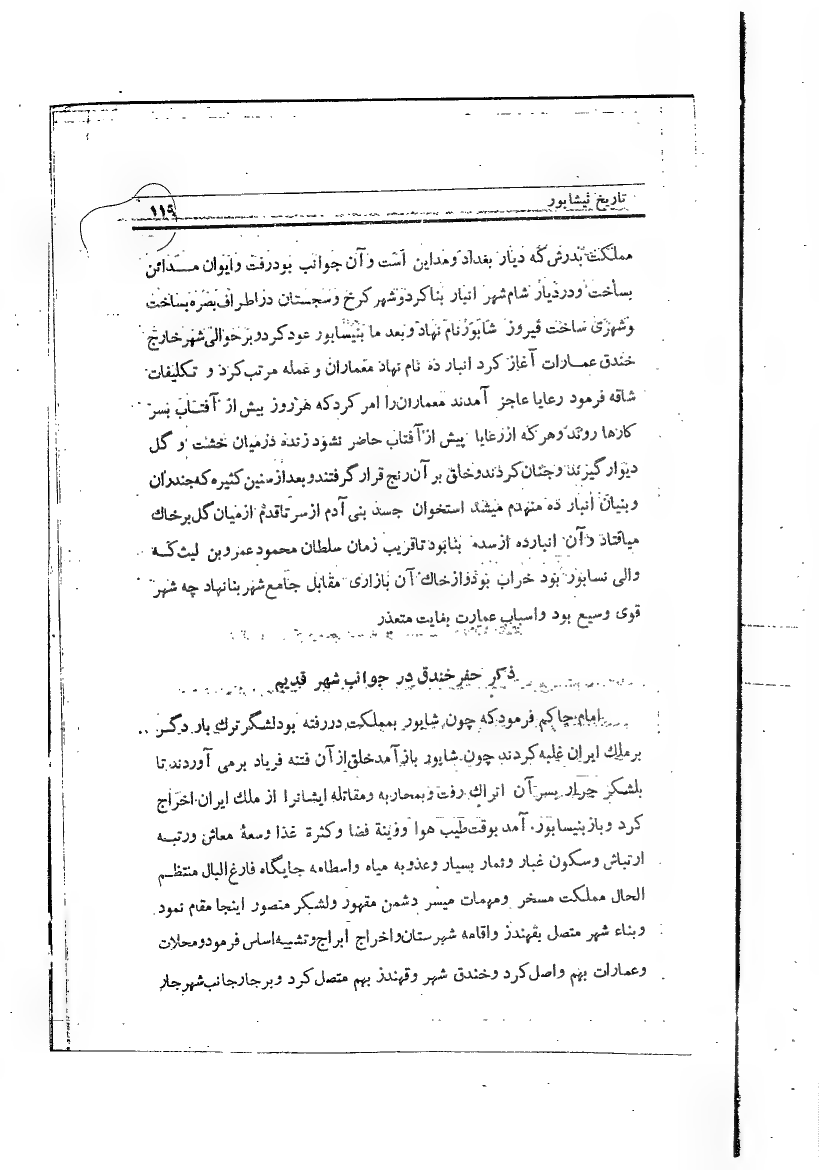 تاریخ نیشابور
۱۱۹
مملکت پدرش که دیار بغداد و مداین است و آن جوانب بود رفت و ایوان مدائن
بساخت و در دیار شام شهر انبار بنا کرد و شهر کرخ و سجستان در اطراف بصره بساخت
و شهری ساخت فیروز شاپور نام نهاد و بعد ما بنیسابور عود کرد و بر حوالی شهر خارج
خندق عمارات آغاز کرد انبار ده نام نهاد معماران و عمله مرتب کرد و تکلیفات
شاقه فرمود رعایا عاجز آمدند معماران را امر کرد که هر روز پیش از آفتاب بسر
کارها روند و هر که از رعایا پیش از آفتاب حاضر نشود زنده در میان خشت و گل
دیوار گیرند و چنان کردند و خلق بر آن رنج قرار گرفتند و بعد از سنین کثیره که جدران
و بنیان انبار ده منهدم میشد استخوان جسد بنی آدم از سر تا قدم از میان گل بر خاك
میافتاد و آن انبارده از سده بنا بود تا قریب زمان سلطان محمود عمرو بن لیث که
والی نسابور بود خراب بود و از خاك آن بازاری مقابل جامع شهر بنا نهاد چه شهر
قوی وسیع بود و اسباب عمارت بغایت متعذر
ذکر حفر خندق در جوانب شهر قدیم
امام حاکم فرمود که چون شاپور بمملکت در رفته بود لشگر ترك بار دگر
بر ملك ایران غلبه کردند چون شاپور باز آمد خلق از آن فتنه فریاد برمی آوردند تا
بلشکر جرار بسر آن اتراك رفت و بمحاربه و مقاتله ایشانرا از ملك ایران اخراج
کرد و باز بنیسابور آمد بوقت طیب هوا وزینة فضا وکثرة غذا وسعة معاش ورتبه
ارتباش وسکون غبار وثمار بسیار وعذوبه میاه واسطامه جایگاه فارغ البال منتظم
الحال مملکت مسخر ومهمات میسر دشمن مقهور ولشکر منصور اینجا مقام نمود
وبناء شهر متصل بقهندز واقامه شهرستان واخراج ابراج وتشییه اساس فرمود ومحلات
وعمارات بهم واصل کرد وخندق شهر وقهندز بهم متصل کرد وبرچار جانب شهر چار